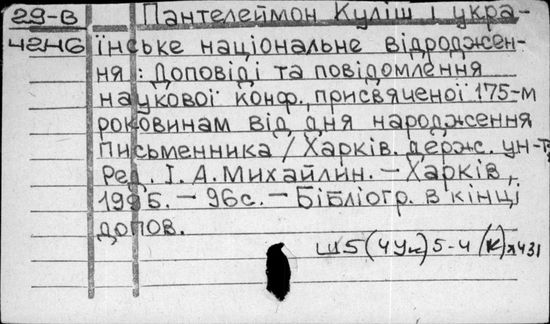 29-В Пантелеймон Куліш і укра-
чена6 їнське національне відроджен-
ня : Доповіді та повідомлення
наукової конф., присвяченої 175-м
роковинам від дня народження
письменника / Харків. держ. ун-т;
Ред. І. А. Михайлин. — Харків,
1995. — 96с. — Бібліогр. в кінці
допов.
Ш5(4Ук)5-4 (К)я431